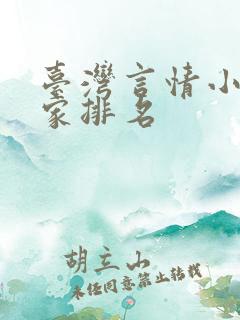 臺灣言情小
家排名
胡立山
未经同意禁止转载